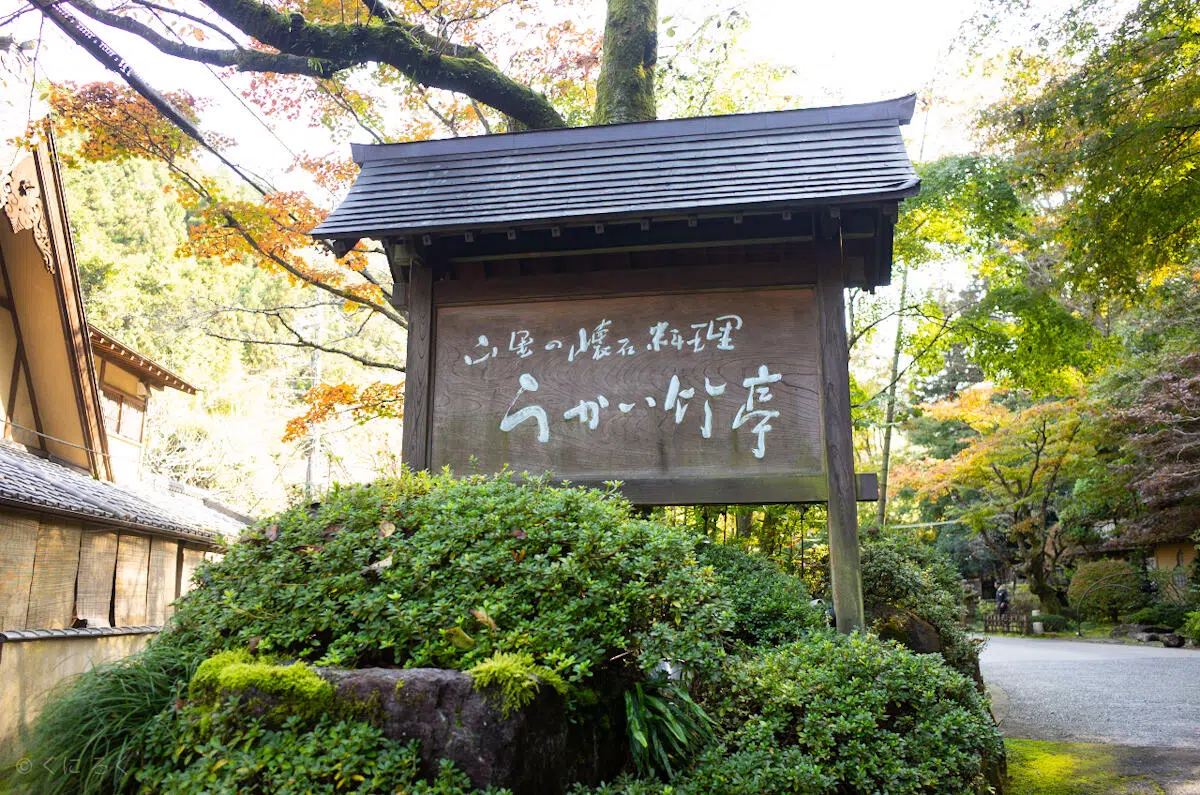 山里の懐石料理
うかい竹亭
© くにろく